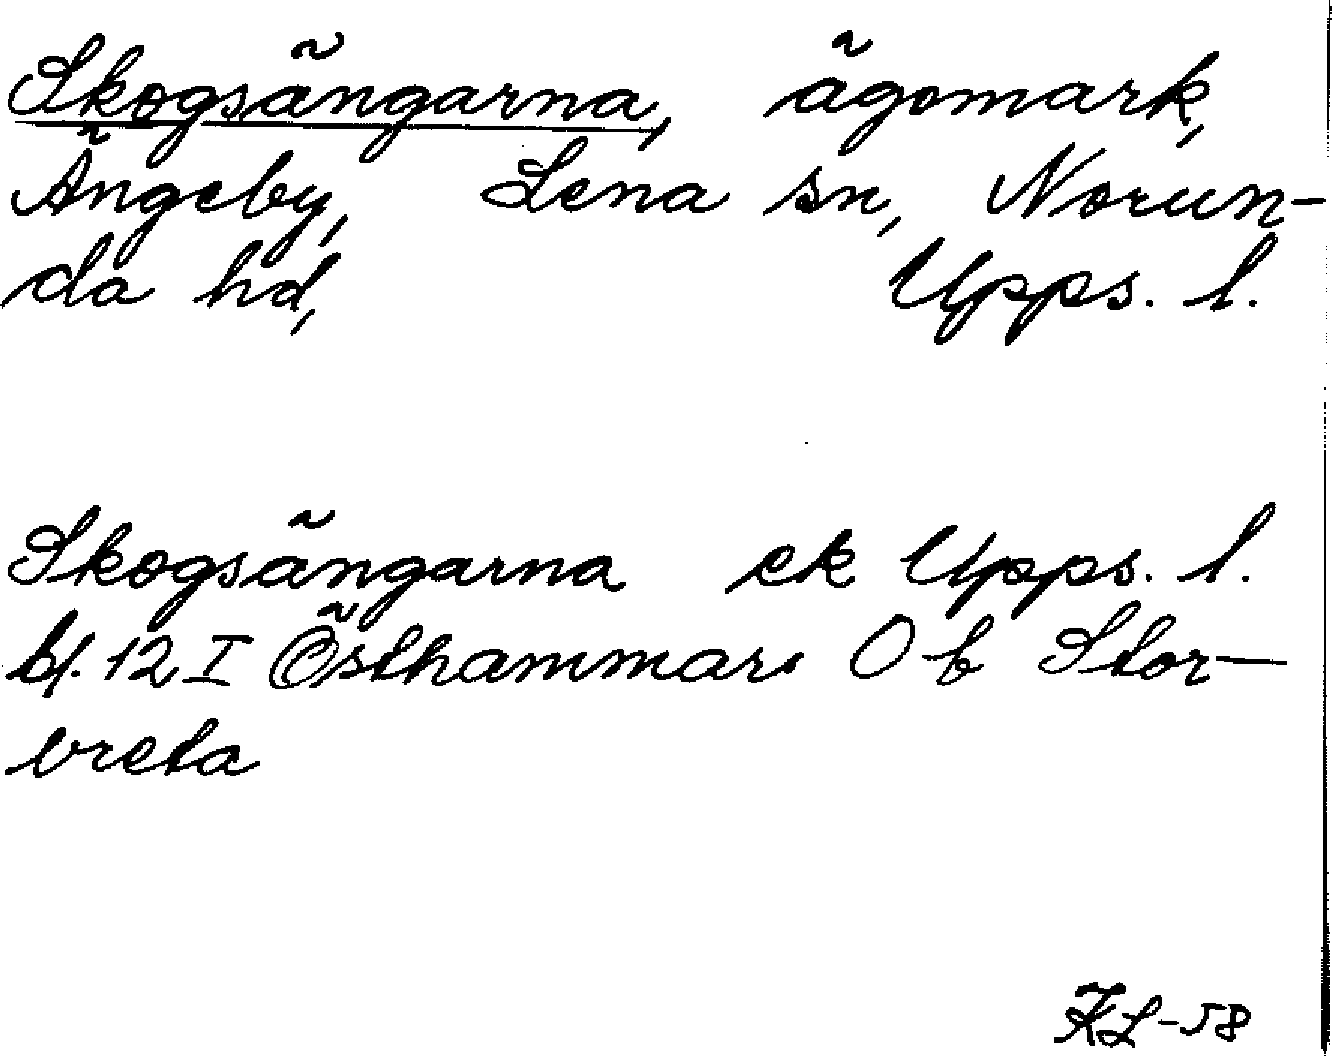 Skogsängarna, ägomark,
Ängeby, Lena sn, Norun-
da hd, Upps. l.
Skogsängarna ek Upps. l.
bl. 12 I Östhammar O b Stor-
vreta
KL-58